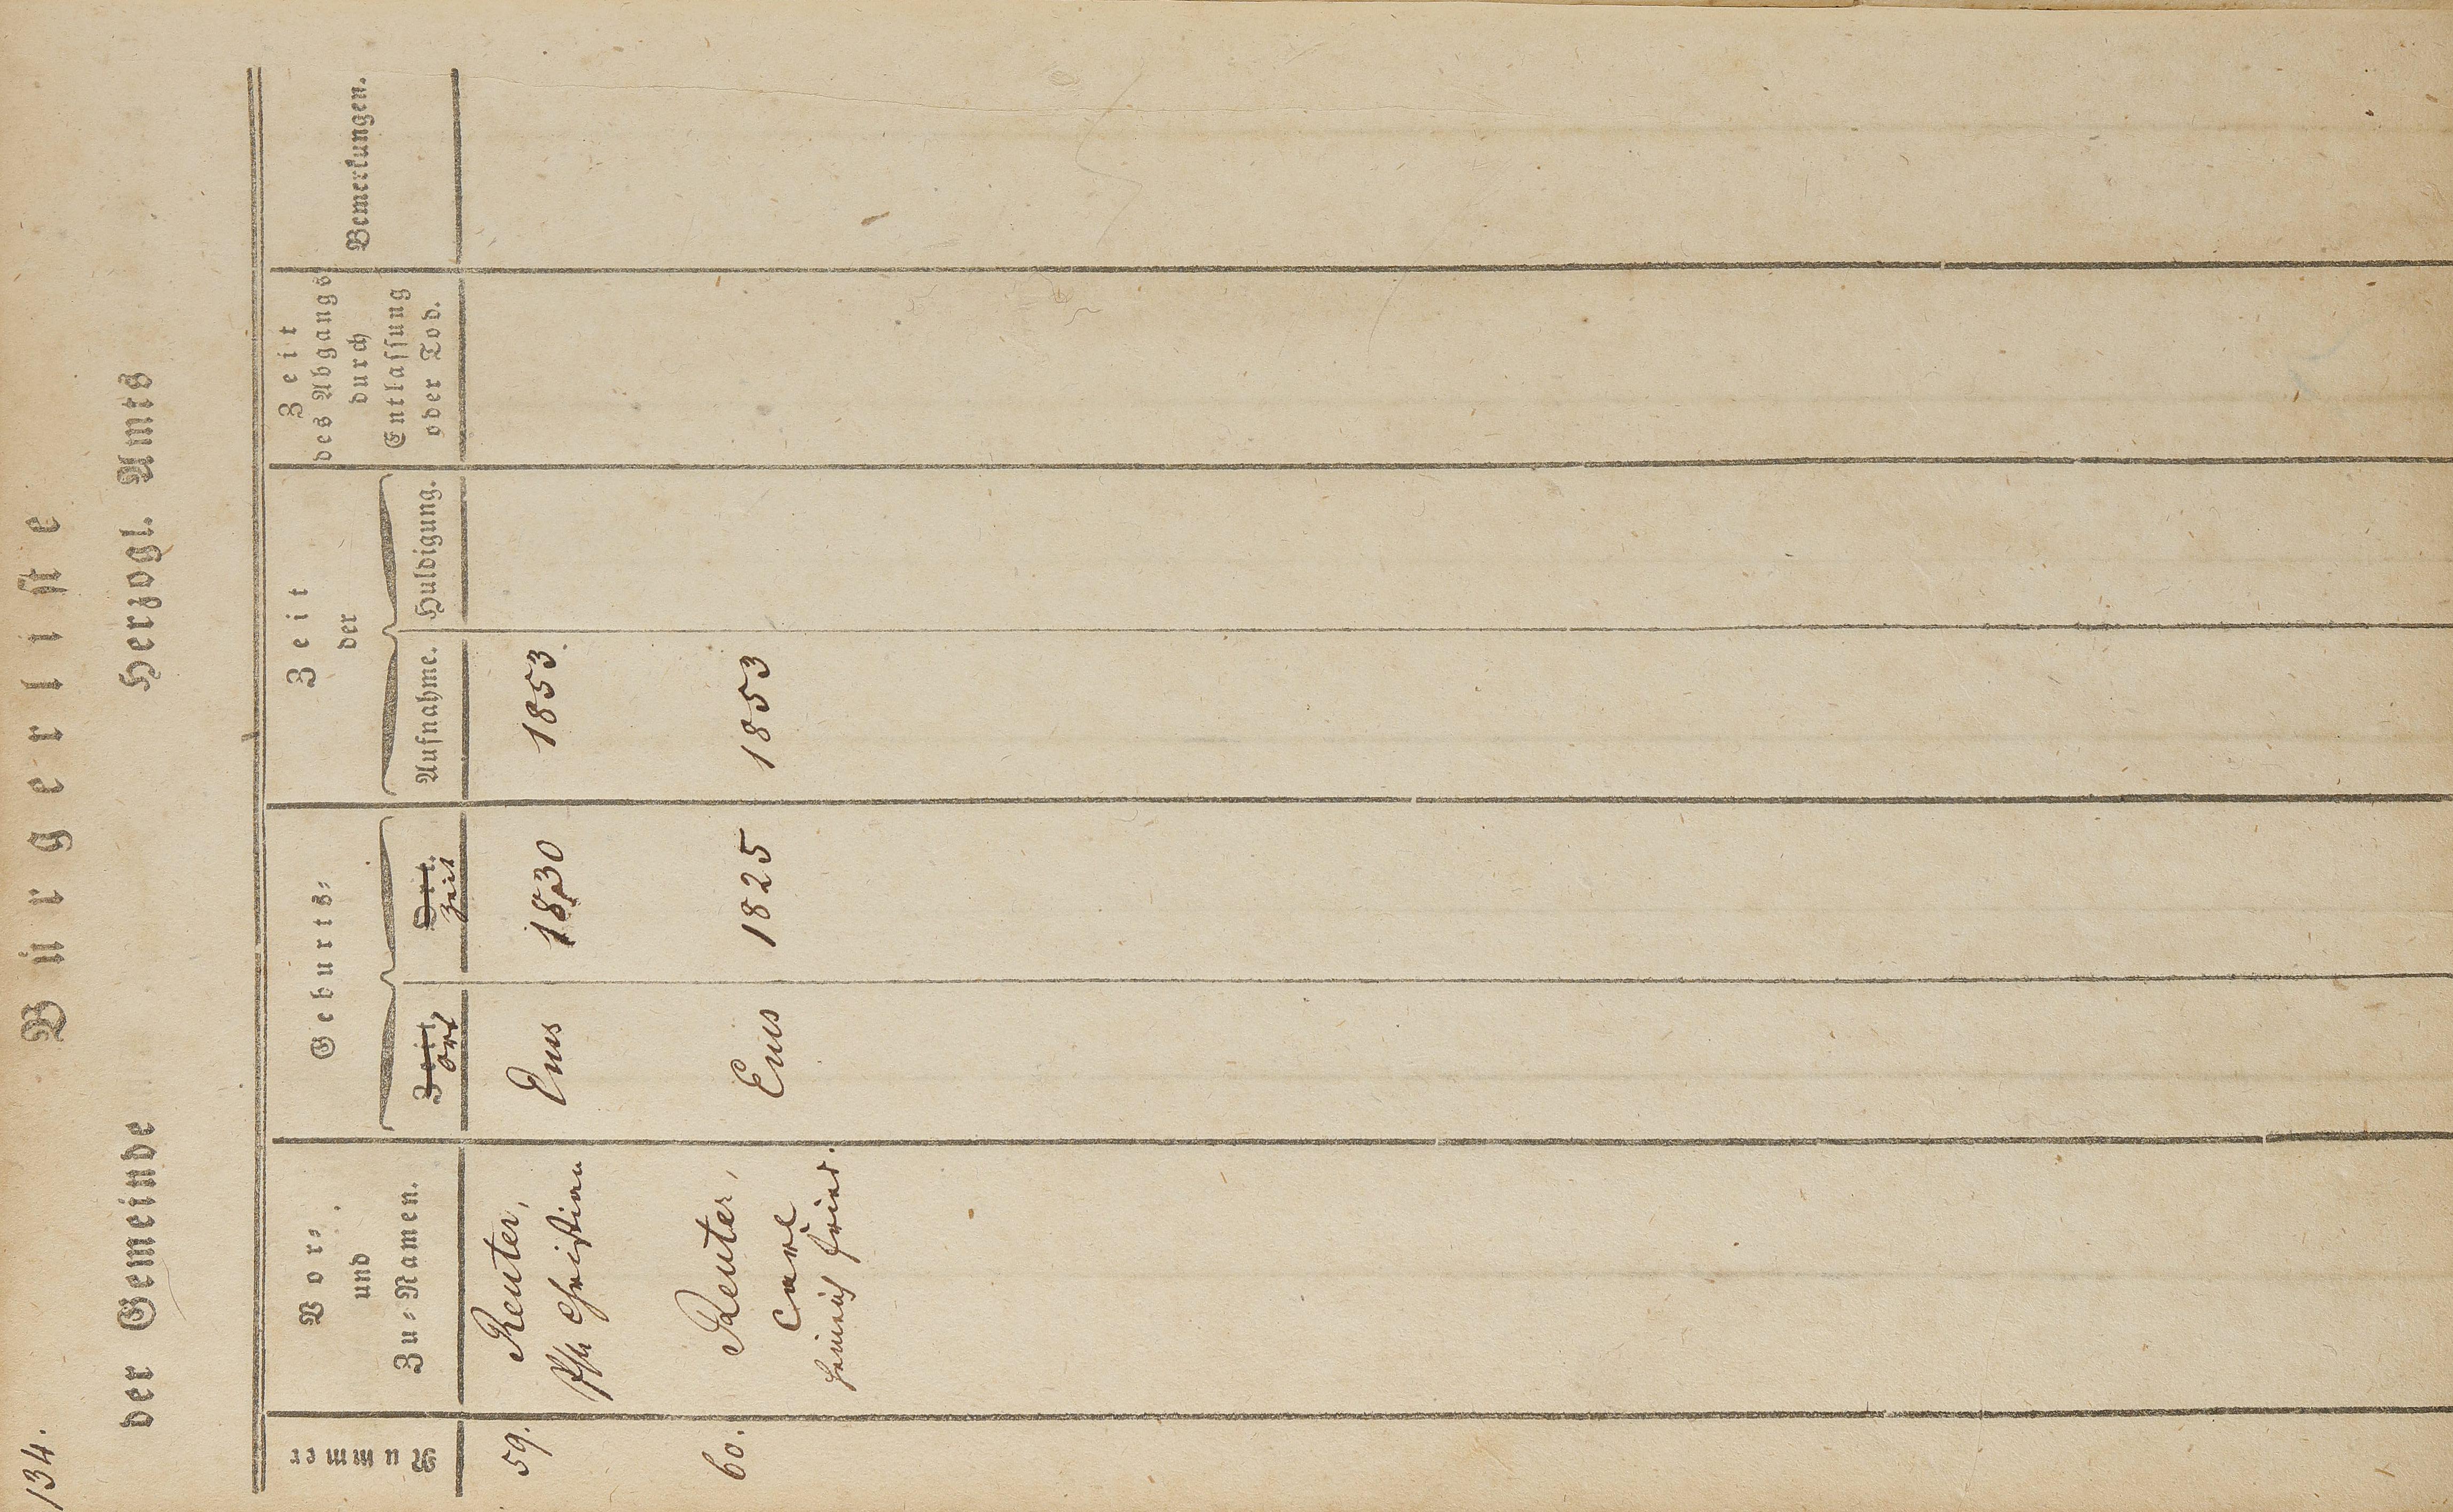 134.
Bürgerliste
der Gemeinde Herzogl. Amts
Nummer
Vor=
und
Zu=Namen.
Geburts=
Zeit. Ort.
Ort Zeit
Zeit
der
Aufnahme. Huldigung.
Zeit
des Abgangs
durch
Entlassung
oder Tod.
Bemerkungen.
59. Reuter, Ems 1830 1853.
Ph Christian
60. Reuter, Ems 1825 1853
Carl
Heinrich Fried.